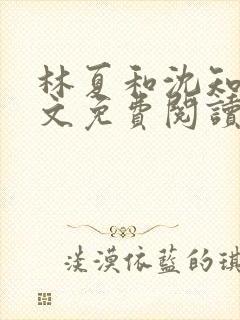 林夏和沈知
文免費閱讀
淡漠依藍的琪